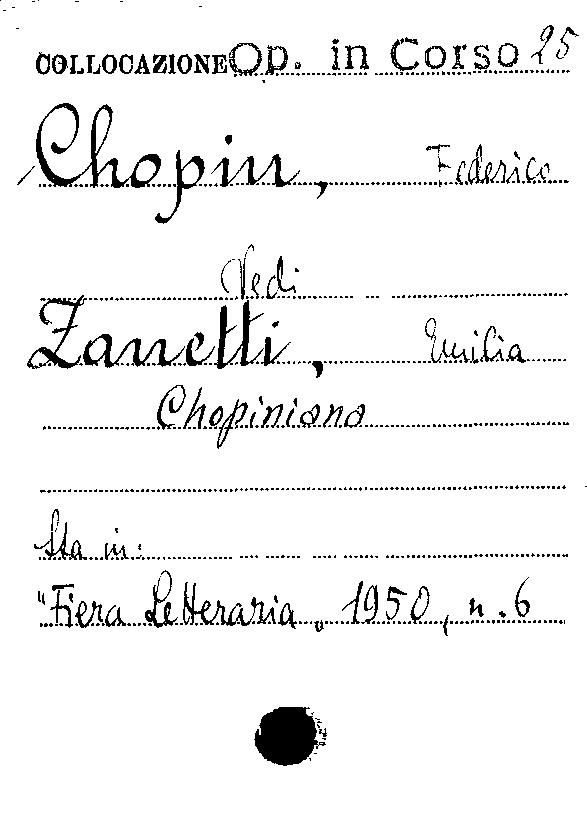 COLLOCAZIONE Op. in Corso 25
Chopin, Federico
Vedi
Zanetti, Emilia
Chopiniana
Sta in:
"Fiera Letteraria„ 1950, n. 6